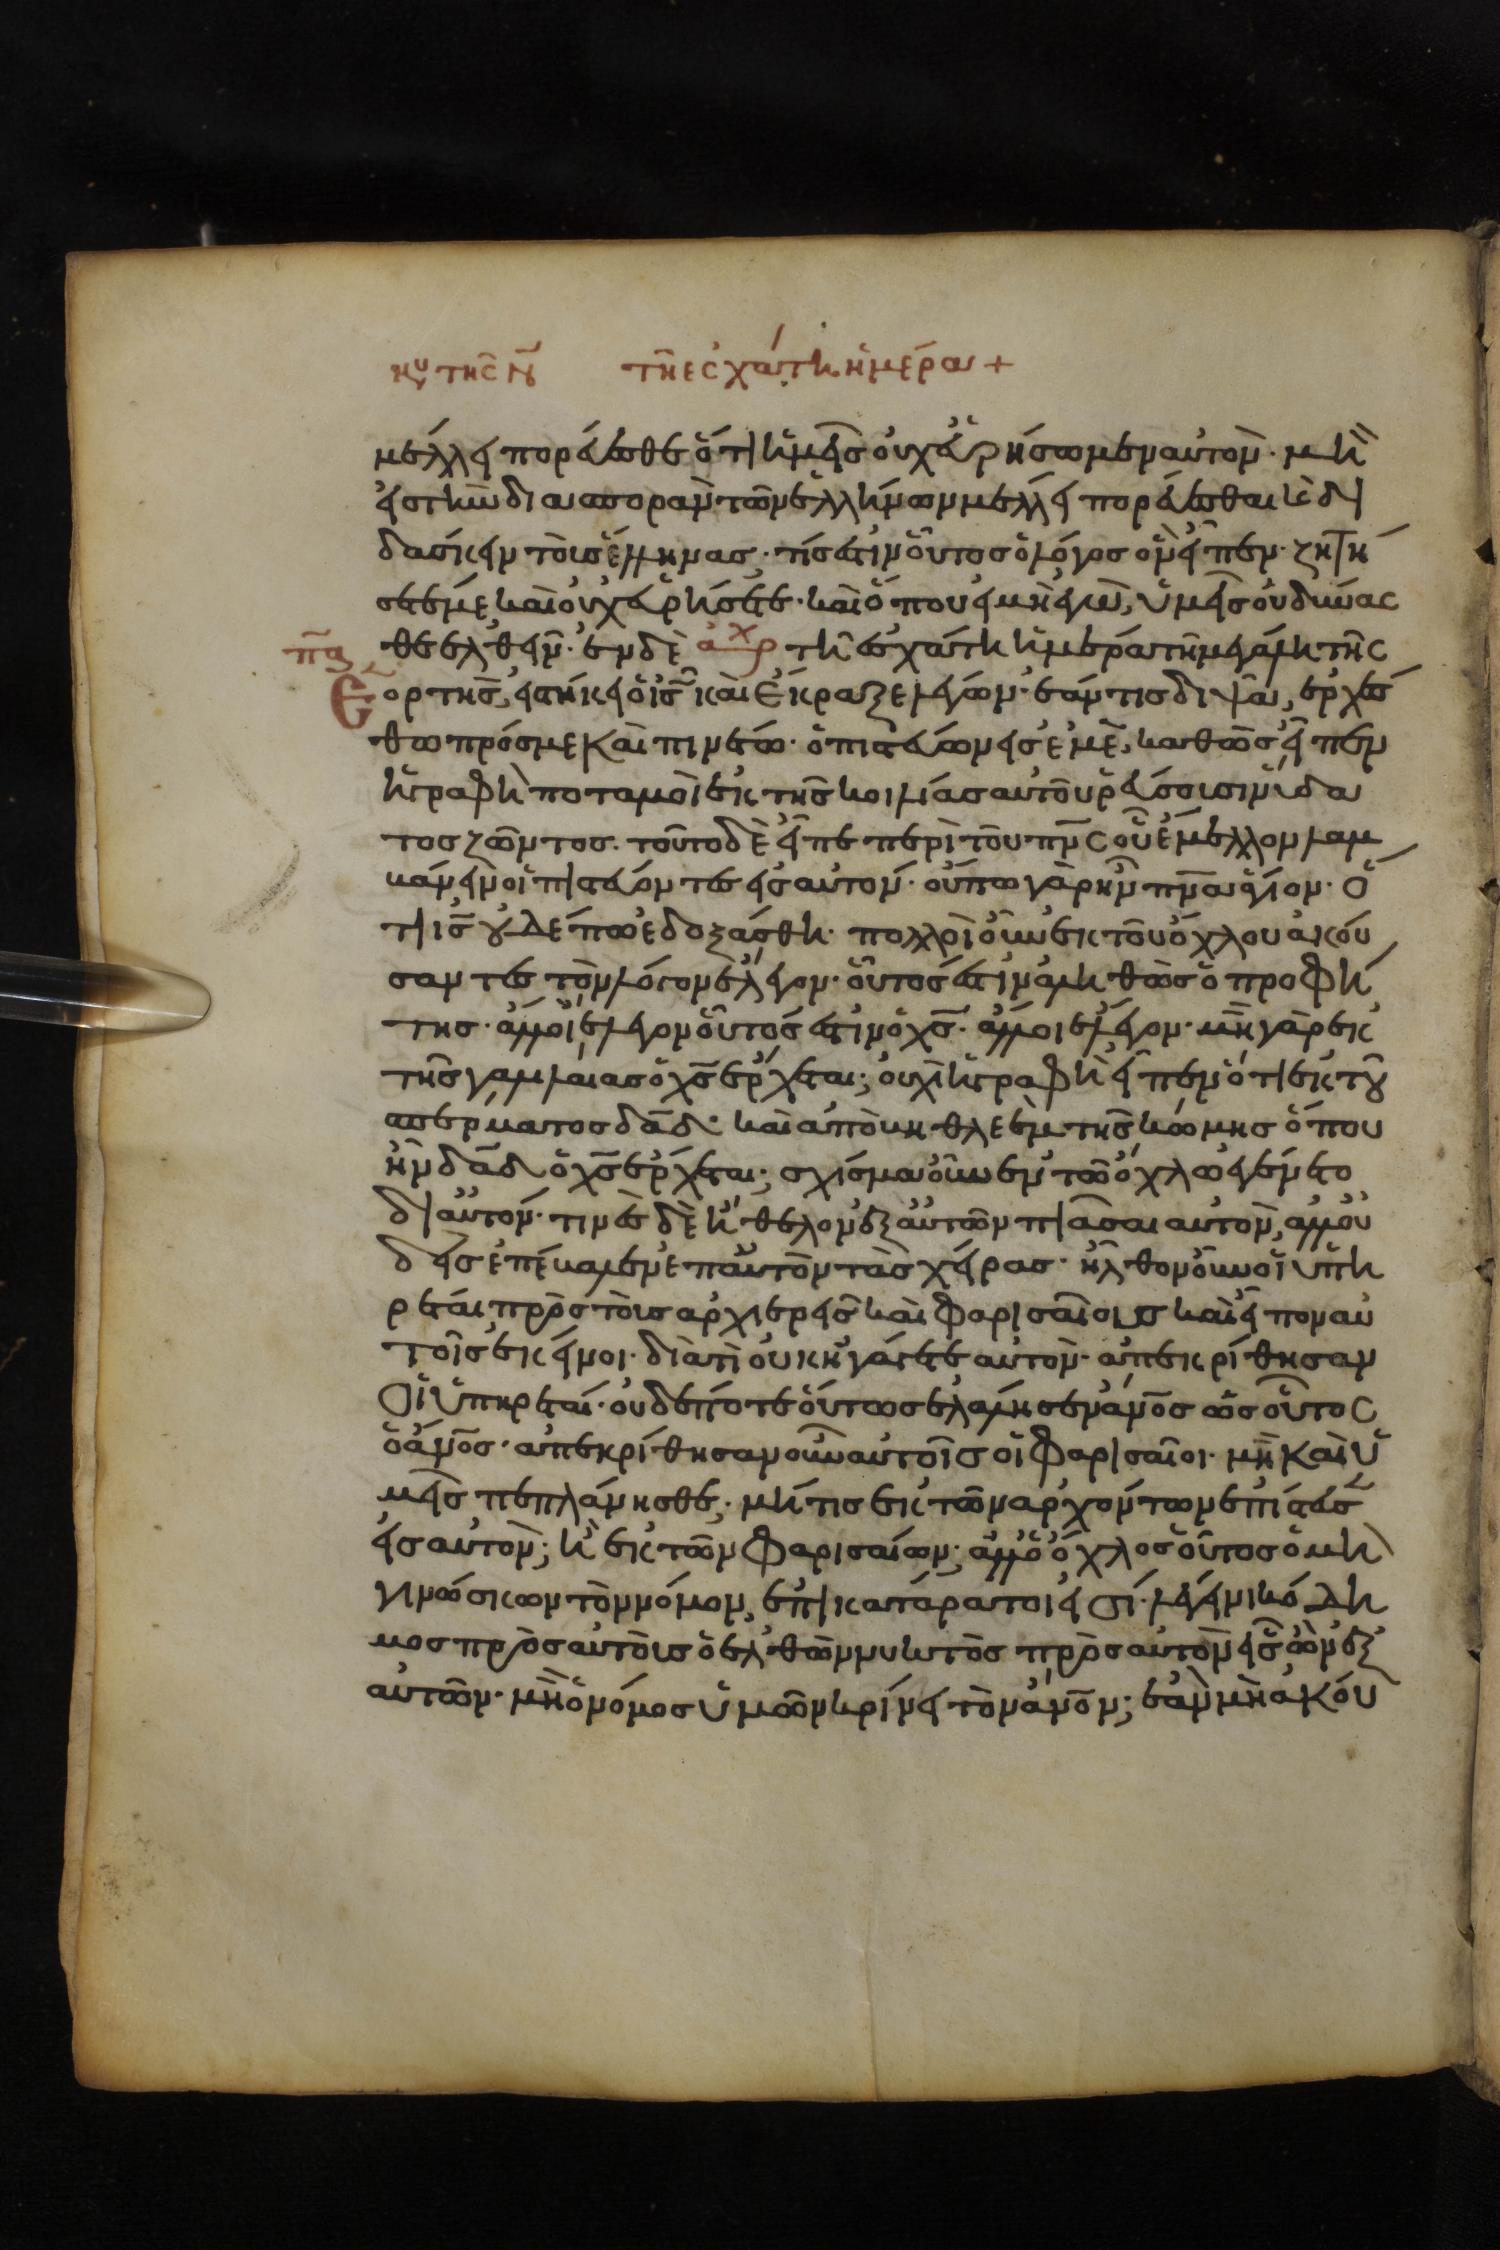 κυ τῆς Ν τῆ ἐσχάτη ἡμέρα +
μέλλει πορεύεσθε ὅτι ἡμεῖς οὐχ εὑρήσωμεν αὐτόν· μὴ
εἰς τὴν διασπορὰν τῶν ἑλλήνων μέλλει πορεύεσθαι κὲ δι
δάσκειν τοὺς ἕλληνας· τίς ἐστιν οὗτος ὁ λόγος ὃν εἶπεν· ζητή
σετέ με καὶ οὐχ εὑρήσετε· καὶ ὅπου εἰμὶ ἐγὼ, ὑμεῖς οὐ δύνασ
θε ἐλθεῖν· ἐν δὲ ἀρχ τῆ ἐσχάτη ἡμέρα τῆ μεγάλη τῆς
ἑορτῆς, εἱστήκει ὁ ις καὶ ἔκραζε λέγων· ἐάν τις διψᾶ, ἐρχέσ
θω πρός με καὶ πινέτω· ὁ πιστεύων εἰς ἐμὲ, καθὼς εἶπεν
ἡ γραφὴ ποταμοὶ ἐκ τῆς κοιλίας αὐτοῦ ῥεύσουσιν ὕδα
τος ζῶντος. τοῦτο δὲ εἶπε περὶ τοῦ πνς οὗ ἔμελλον λαμ
βάνειν οἱ πιστεύοντες εἰς αὐτόν· οὔπω γὰρ ἦν πνα ἅγιον· ὅ
τι ις οὐδέπω ἐδοξάσθη· πολλοὶ οὖν ἐκ τοῦ ὄχλου ἀκού
σαντες τὸν λόγον ἔλεγον· οὗτός ἐστιν ἀληθῶς ὁ προφή
της· ἄλλοι ἔλεγον οὗτός ἐστιν ὁ χς· ἄλλοι ἔλεγον· μὴ γὰρ ἐκ
τῆς γαλιλαίας ὁ χς ἔρχεται; οὐχὶ ἡ γραφὴ εἶπεν ὅτι ἐκ τοῦ
σπέρματος δαδ· καὶ ἀπὸ βηθλεὲμ τῆς κώμης ὅπου
ἦν δαδ ὁ χς ἔρχεται; σχίσμα οὖν ἐν τῶ ὄχλω ἐγένετο
δι αὐτόν· τινὲς δὲ ἤθελον ἐξ αὐτῶν πιάσαι αὐτὸν, ἀλλ οὐ
δεὶς ἐπέβαλεν ἐπ αὐτὸν τὰς χεῖρας· ἦλθον οὖν οἱ ὑπη
ρέται πρὸς τοὺς ἀρχιερεῖς καὶ φαρισαίους καὶ εἶπον αὐ
τοῖς ἐκεῖνοι· διατί οὐκ ἠγάγετε αὐτόν· ἀπεκρίθησαν
οἱ ὑπηρέται· οὐδέποτε οὕτως ἐλάλησεν ανος ὡς οὗτος
ὁ ανος· ἀπεκρίθησαν οὖν αὐτοῖς οἱ φαρισαῖοι· μὴ καὶ ὑ
μεῖς πεπλάνησθε· μή τις ἐκ τῶν ἀρχόντων ἐπίστευσ
εἰς αὐτόν; ἢ ἐκ τῶν φαρισαίων; ἀλλ ὁ ὄχλος οὗτος ὁ μὴ
γινώσκων τὸν νόμον, ἐπικατάρατοι εἰσί· λέγει νικόδη
μος πρὸς αὐτοὺς ὁ ἐλθὼν νυκτὸς πρὸς αὐτὸν εἷς ὢν ἐξ
αὐτῶν· μὴ ὁ νόμος ὑμῶν κρίνει τὸν ανον; ἐὰν μὴ ἀκού